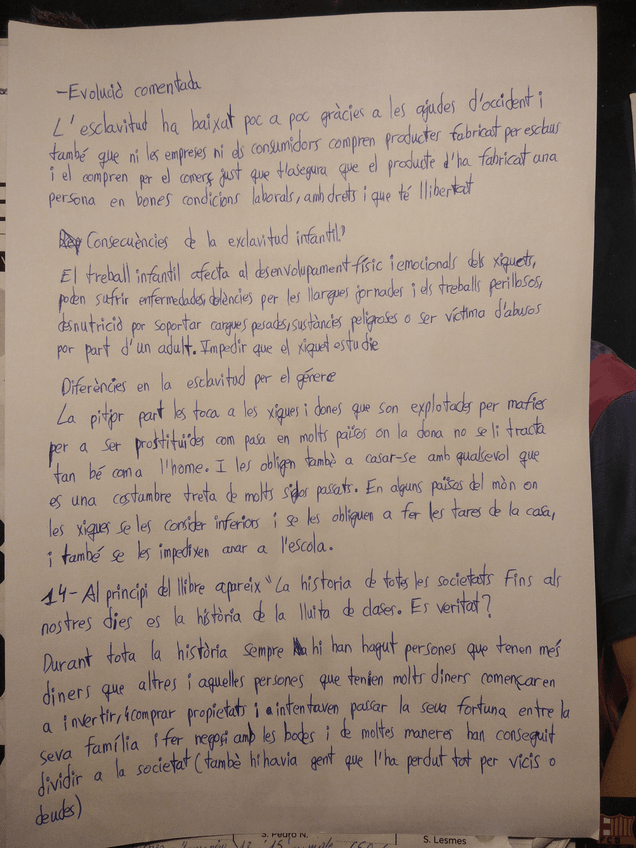 -Evolució comentada
L'esclavitud ha baixat poc a poc gràcies a les ajudes d'occident i
també que ni les empreses ni els consumidors compren productes fabricat per esclaus
i el compren per el comerç just que t'asegura que el producte d'ha fabricat una
persona en bones condicions laborals, amb drets i que té llibertat
Consecuències de la exclavitud infantil
El treball infantil afecta al desenvolupament físic i emocionals dels xiquets,
poden sufrir enfermedades, dolències per les llargues jornades i els treballs perillosos,
desnutrició por soportar cargues pesades, sustàncies peligroses o ser víctima d'abusos
por part d'un adult. Impedir que el xiquet estudie
Diferències en la esclavitud per el génere
La pitjor part les toca a les xiques i dones que son explotades per mafies
per a ser prostituides com pasa en molts països on la dona no se li tracta
tan bé com a l'home. I les obligen també a casar-se amb qualsevol que
es una costumbre treta de molts sigles passats. En alguns països del mòn on
les xiques se les consider inferiors i se les obliguen a fer les tares de la casa,
i també se les impedixen anar a l'escola.
14- Al principi del llibre apareix "La historia de totes les societats Fins als
nostres dies es la història de la lluita de clases. Es veritat?
Durant tota la història sempre hi han hagut persones que tenen més
diners que altres i aquelles persones que tenien molts diners començaren
a invertir, comprar propietats i a intentaven passar la seva fortuna entre la
seva família i fer negosi amb les bodes i de moltes maneres han conseguit
dividir a la societat (també hi havia gent que l'ha perdut tot per vicis o
deudes)
S. Pedro N.
S. Lesmes